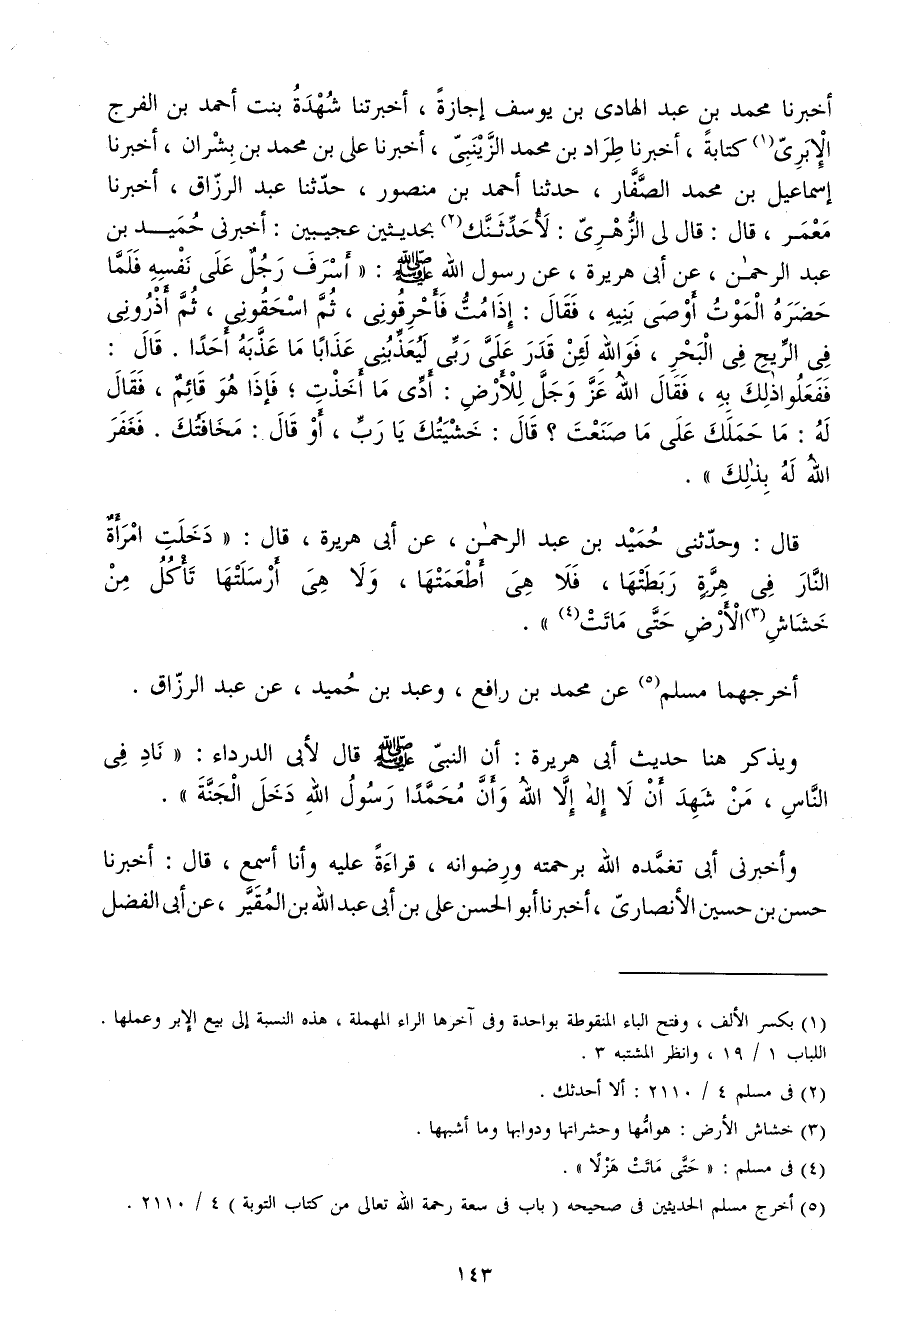 أخبرنا محمد بن عبد الهادى بن يوسف إجازةً ، أخبرتنا شُهْدَةُ بنت أحمد بن الفرج
الْإِبَرِىّ(١) كتابةً ، أخبرنا طِرَاد بن محمد الزَّيْنَبِىّ ، أخبرنا على بن محمد بن بِشْران ، أخبرنا
إسماعيل بن محمد الصَّفَّار ، حدثنا أحمد بن منصور ، حدّثنا عبد الرزّاق ، أخبرنا
مَعْمَر ، قال : قال لى الزُّهْرِىّ : لَأُحَدِّثَنَّك(٢) بحديثين عجيبين : أخبرنى حُمَيد بن
عبد الرحمٰن ، عن أبى هريرة ، عن رسول الله ﷺ : « أَسْرَفَ رَجُلٌ عَلَى نَفْسِهِ فَلَمَّا
حَضَرَهُ الْمَوْتُ أَوْصَى بَنِيهِ ، فَقَالَ : إِذَا مُتُّ فَأَحْرِقُونِى ، ثُمَّ اسْحَقُونِى ، ثُمَّ أَذْرُونِى
فِى الرِّيحِ فِى الْبَحْرِ ، فَوَاللهِ لَئِنْ قَدَرَ عَلَىَّ رَبِّى لَيُعَذِّبُنِى عَذَابًا مَا عَذَّبَهُ أَحَدًا . قَالَ :
فَفَعَلُوا ذٰلِكَ بِهِ ، فَقَالَ اللهُ عَزَّ وَجَلَّ لِلْأَرْضِ : أَدِّى مَا أَخَذْتِ ؛ فَإِذَا هُوَ قَائِمٌ ، فَقَالَ
لَهُ : مَا حَمَلَكَ عَلَى مَا صَنَعْتَ ؟ قَالَ : خَشْيَتُكَ يَا رَبِّ ، أَوْ قَالَ : مَخَافَتُكَ . فَغَفَرَ
اللهُ لَهُ بِذٰلِكَ » .
قال : وحدّثنى حُمَيْد بن عبد الرحمٰن ، عن أبى هريرة ، قال : « دَخَلَتِ امْرَأَةٌ
النَّارَ فِى هِرَّةٍ رَبَطَتْهَا ، فَلَا هِىَ أَطْعَمَتْهَا ، وَلَا هِىَ أَرْسَلَتْهَا تَأْكُلُ مِنْ
خَشَاشِ(٣) الْأَرْضِ حَتَّى مَاتَتْ(٤) » .
أخرجهما مسلم(٥) عن محمد بن رافع ، وعبد بن حُميد ، عن عبد الرزّاق .
ويذكر هنا حديث أبى هريرة : أن النبىّ ﷺ قال لأبى الدرداء : « نَادِ فِى
النَّاسِ ، مَنْ شَهِدَ أَنْ لَا إِلٰهَ إِلَّا اللهُ وَأَنَّ مُحَمَّدًا رَسُولُ اللهِ دَخَلَ الْجَنَّةَ » .
وأخبرنى أبى تغمَّده الله برحمته ورِضوانه ، قراءةً عليه وأنا أسمع ، قال : أخبرنا
حسن بن حسين الأنصارىّ ، أخبرنا أبو الحسن على بن أبى عبد الله بن المُقَيَّر ، عن أبى الفضل
(١) بكسر الألف ، وفتح الباء المنقوطة بواحدة وفى آخرها الراء المهملة ، هذه النسبة إلى بيع الإبر وعملها .
اللباب ١ / ١٩ ، وانظر المشتبه ٣ .
(٢) فى مسلم ٤ / ٢١١٠ : ألا أحدثك .
(٣) خشاش الأرض : هوامُّها وحشراتها ودوابها وما أشبهها .
(٤) فى مسلم : « حَتَّى مَاتَتْ هَزْلًا » .
(٥) أخرج مسلم الحديثين فى صحيحه ( باب فى سعة رحمة الله تعالى من كتاب التوبة ) ٤ / ٢١١٠ .
١٤٣